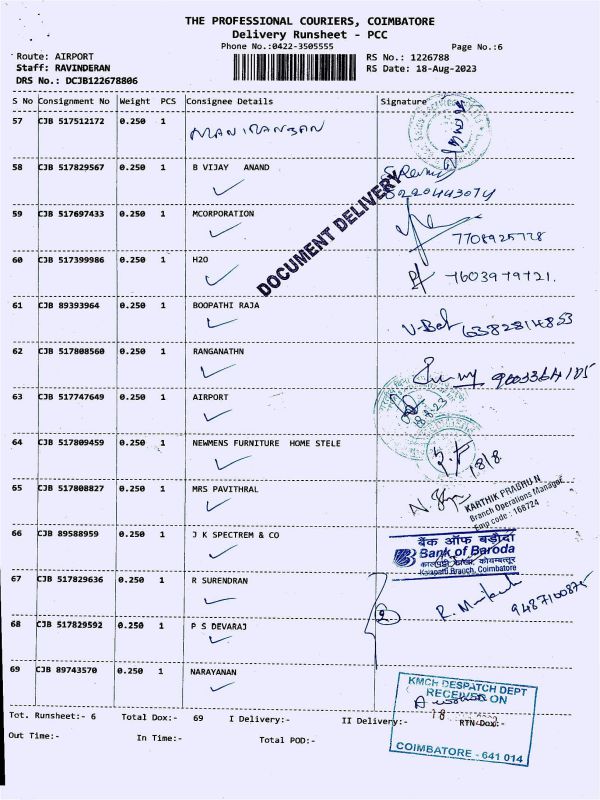 THE PROFESSIONAL COURIERS, COIMBATORE
Delivery Runsheet - PCC
Phone No.:0422-3505555 Page No.:6
Route: AIRPORT RS No.: 1226788
Staff: RAVINDERAN RS Date: 18-Aug-2023
DRS No.: DCJB122678806
S No Consignment No Weight PCS Consignee Details Signature
57 CJB 517512172 0.250 1 MANIRANJAN
58 CJB 517829567 0.250 1 B VIJAY ANAND
DOCUMENT DELIVERY
59 CJB 517697433 0.250 1 MCORPORATION
60 CJB 517399986 0.250 1 H2O 7603979721.
61 CJB 89393964 0.250 1 BOOPATHI RAJA 6382814853
62 CJB 517808560 0.250 1 RANGANATHN
63 CJB 517747649 0.250 1 AIRPORT
64 CJB 517809459 0.250 1 NEWMENS FURNITURE HOME STELE 18/8
65 CJB 517808827 0.250 1 MRS PAVITHRAL
KARTHIK PRABHU N
Branch Operations Manager
Emp code : 168724
66 CJB 89588959 0.250 1 J K SPECTREM & CO
बैंक ऑफ़ बड़ौदा
Bank of Baroda
Kalapatti Branch, Coimbatore
67 CJB 517829636 0.250 1 R SURENDRAN
9487100875
68 CJB 517829592 0.250 1 P S DEVARAJ 2
69 CJB 89743570 0.250 1 NARAYANAN
KMCH DESPATCH DEPT
RECEIVED ON
Tot. Runsheet:- 6 Total Dox:- 69 I Delivery:- II Delivery:- RTN Dox:-
18
Out Time:- In Time:- Total POD:-
COIMBATORE - 641 014